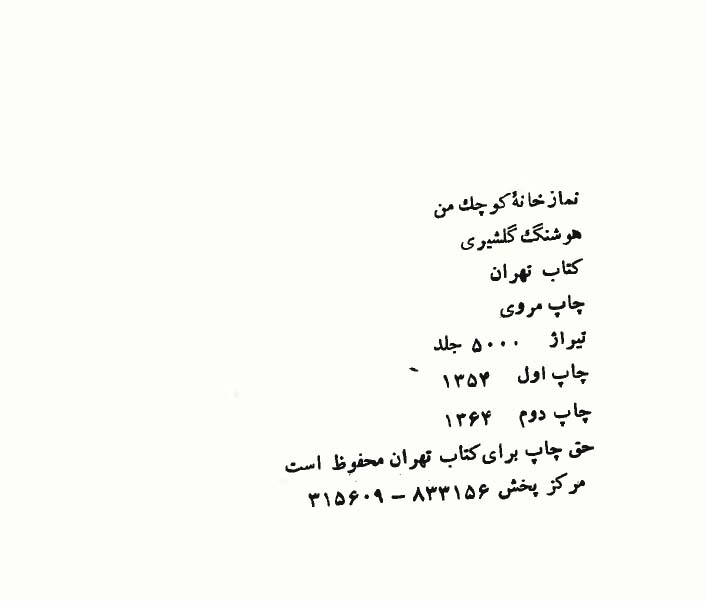 نمازخانهٔ کوچك من
هوشنگ گلشیری
کتاب تهران
چاپ مروی
تیراژ ۵۰۰۰ جلد
چاپ اول ۱۳۵۴
چاپ دوم ۱۳۶۴
حق چاپ برای کتاب تهران محفوظ است
مرکز پخش ۸۳۳۱۵۶ – ۳۱۵۶۰۹